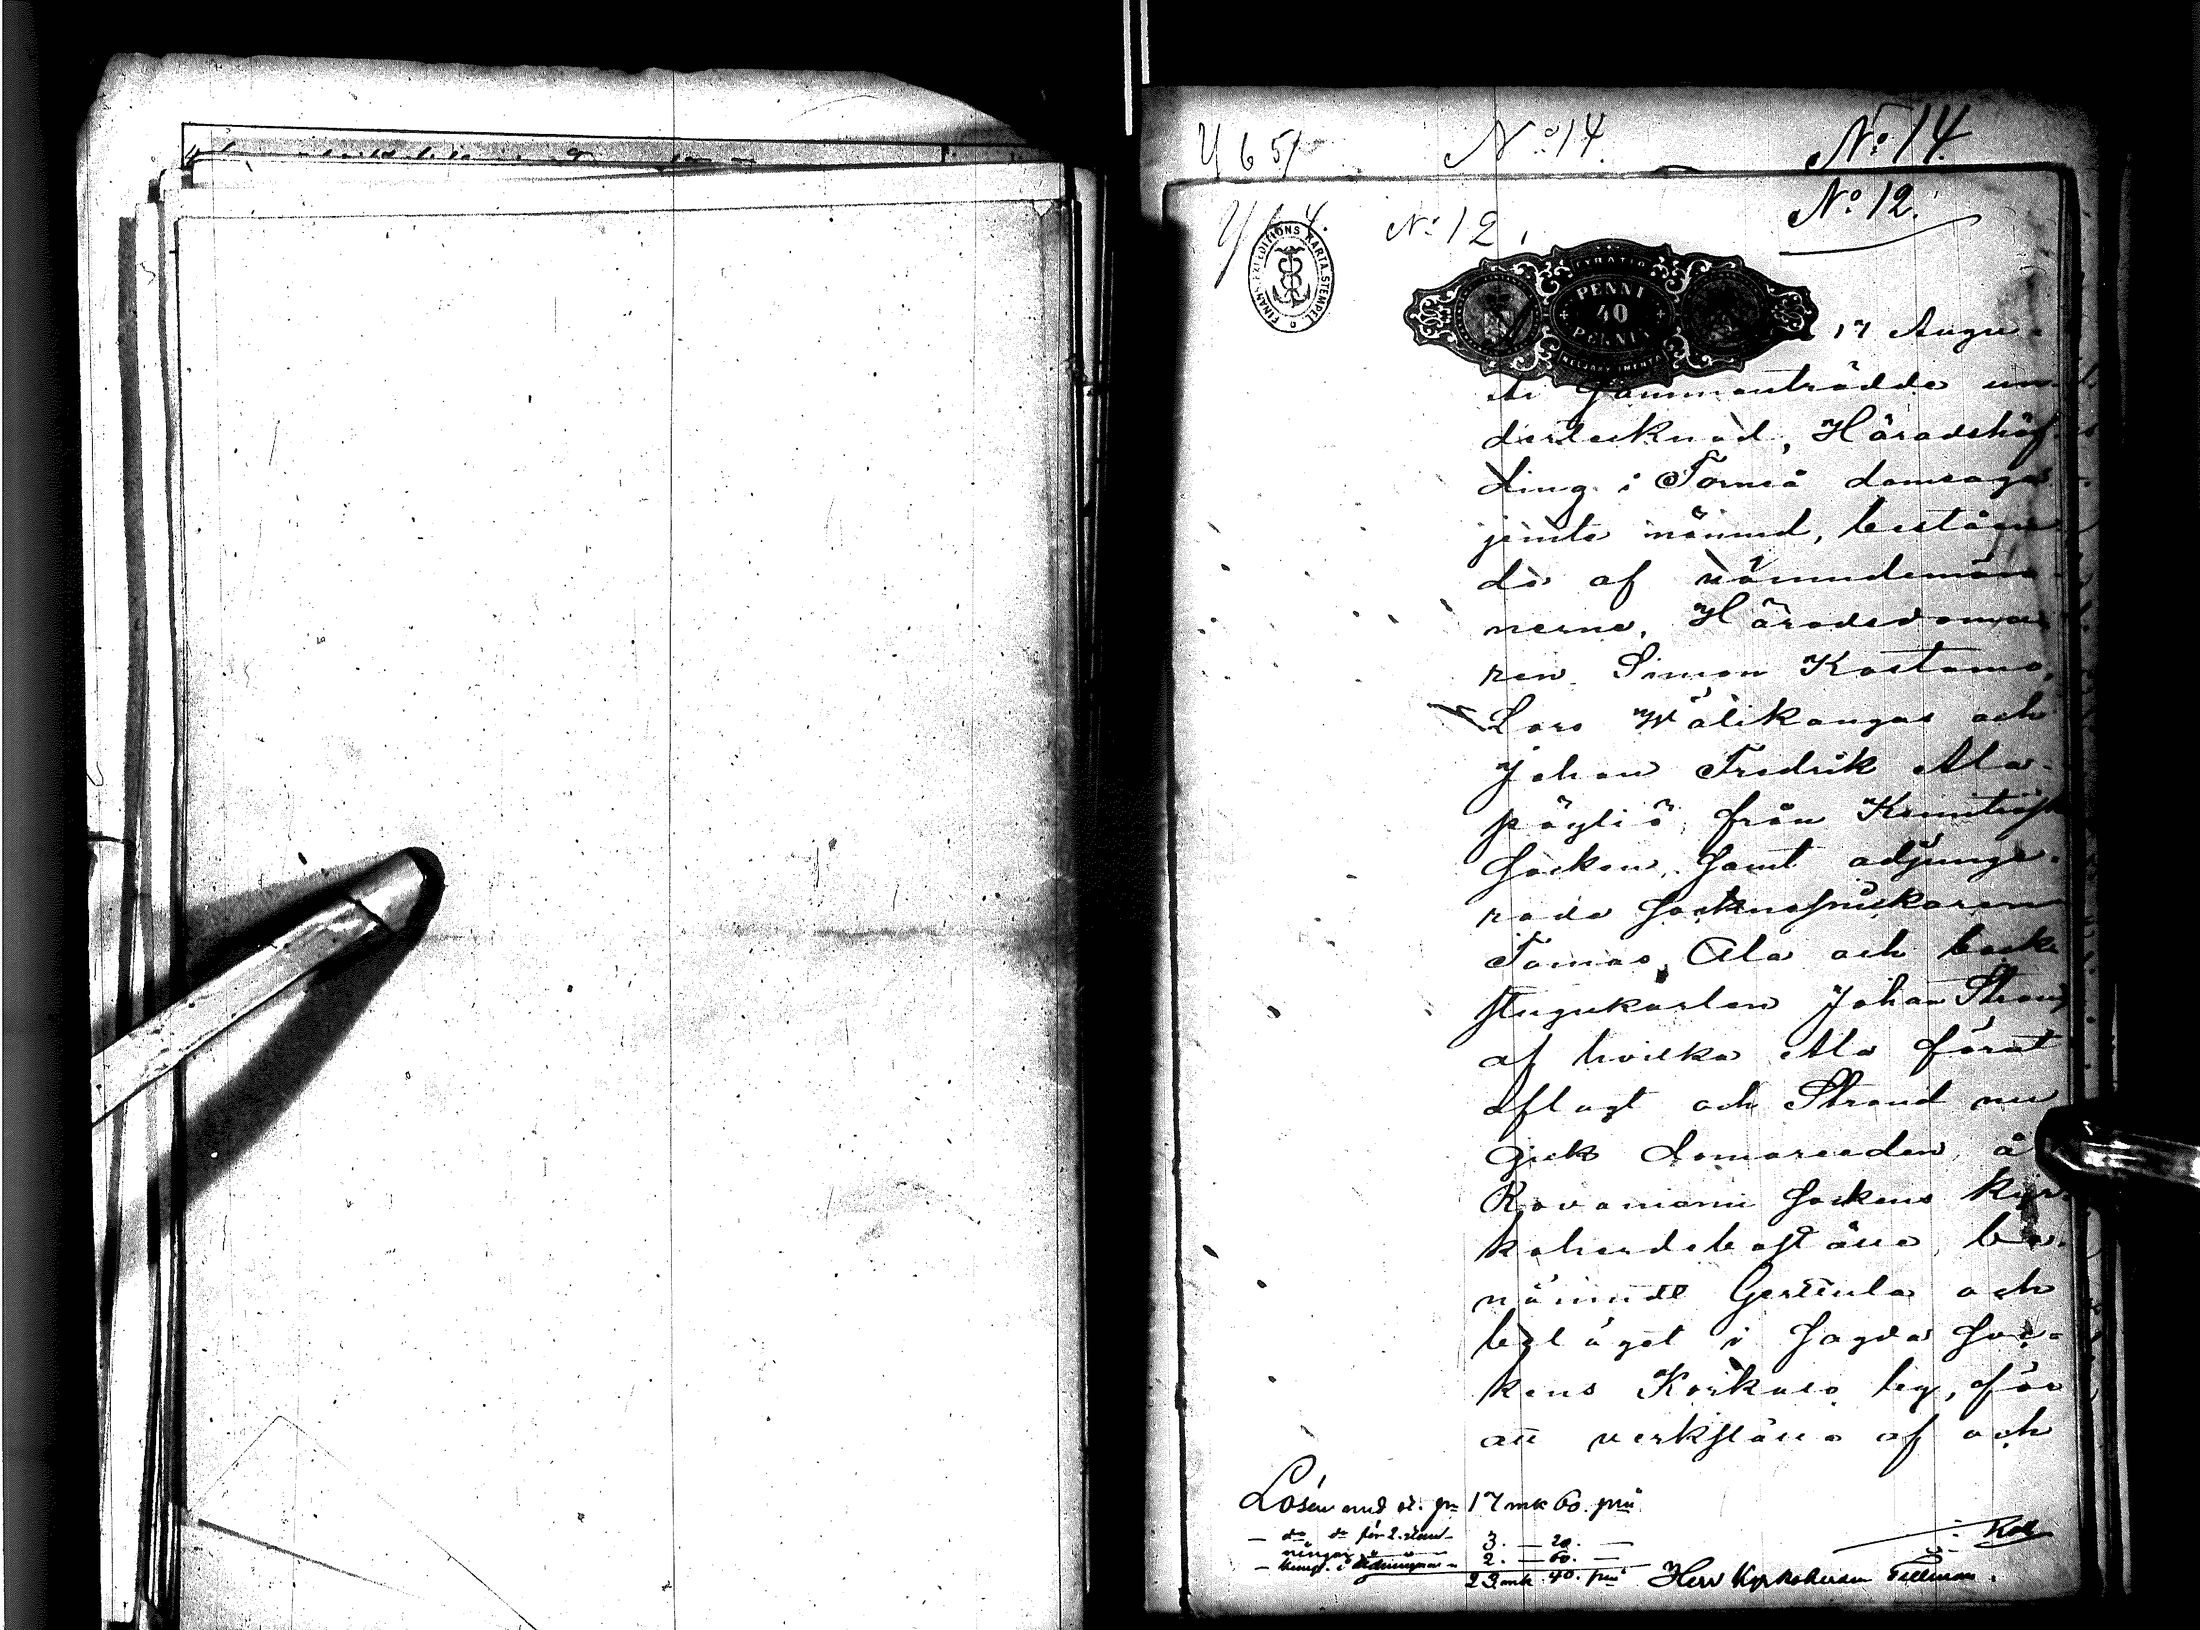 Y 65 No 14. No 14.
No 12. No 12.
FINANS EXPEDITIONS KARTA STEMPEL
PENNI
40
17 Augu-
sti sammanträdde un-
dertecknad, Häradshöf-
ding i Torneå domsaga
jemte nämnd, beståen-
de af nämndemän-
nerne, Häradsdoma-
ren Simon Kostamo,
Lars Wälikangas och
Johan Fredrik Ala-
pöyliö, från Kemiträsk
socken, samt adjunge-
rade socknesnickaren
Tomas Ala och back-
stugukarlen Johan Strand,
af hvilka Ala förut
aflagt och Strand nu
gick domareeden, å
Rovaniemi sockens kyr-
koherdeboställe, be-
nämndt Gertula och
beläget i sagda soc-
kens Korkalo by, för
att verkställa af och
Lösen med st. pr 17 mk 60. pni
— do do för 2.
3. — 20. —
2. — 60. —
23 mk 40. pni Herr Kyrkoherden Tellman.